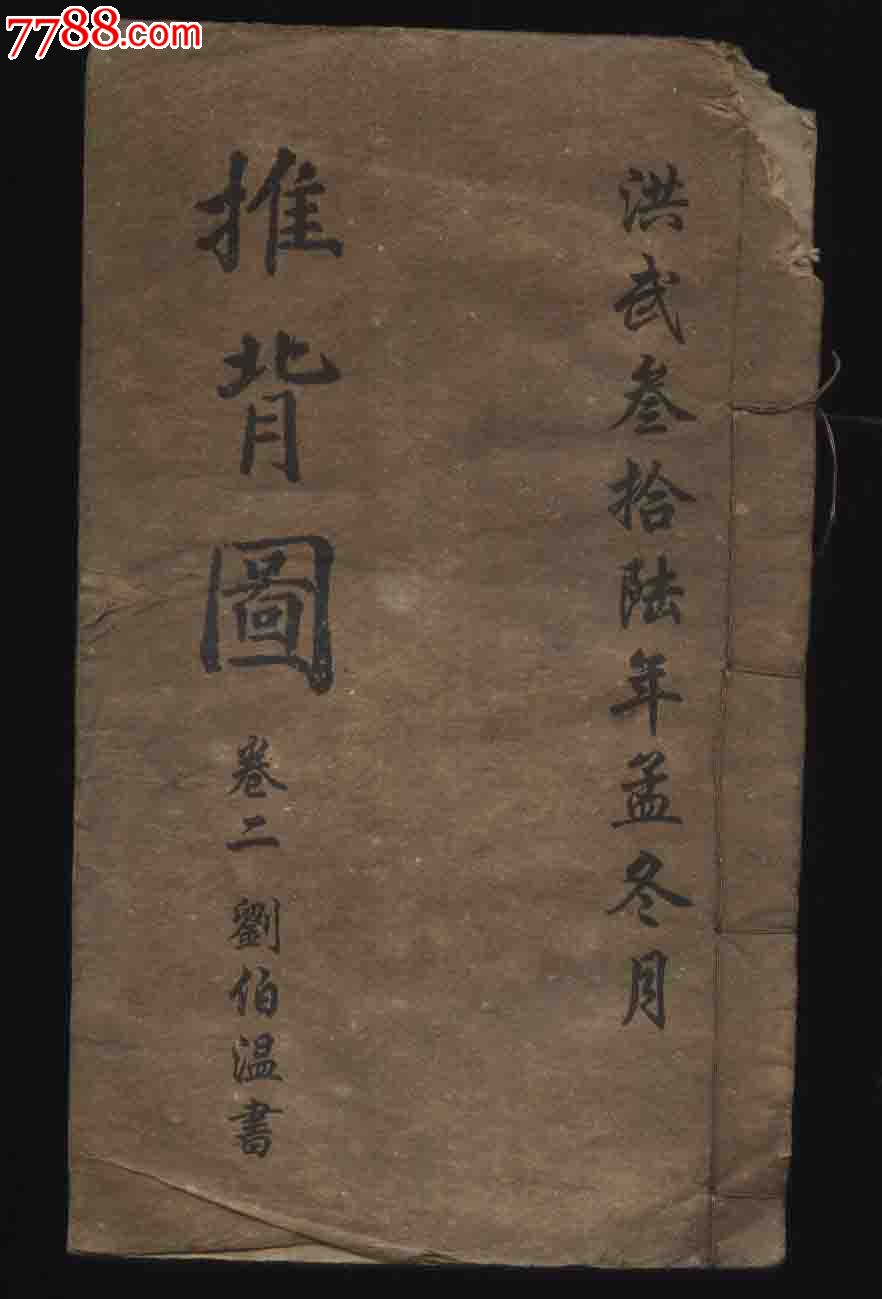 7788.com
洪武叁拾陆年孟冬月
推背圖
卷二 劉伯温書